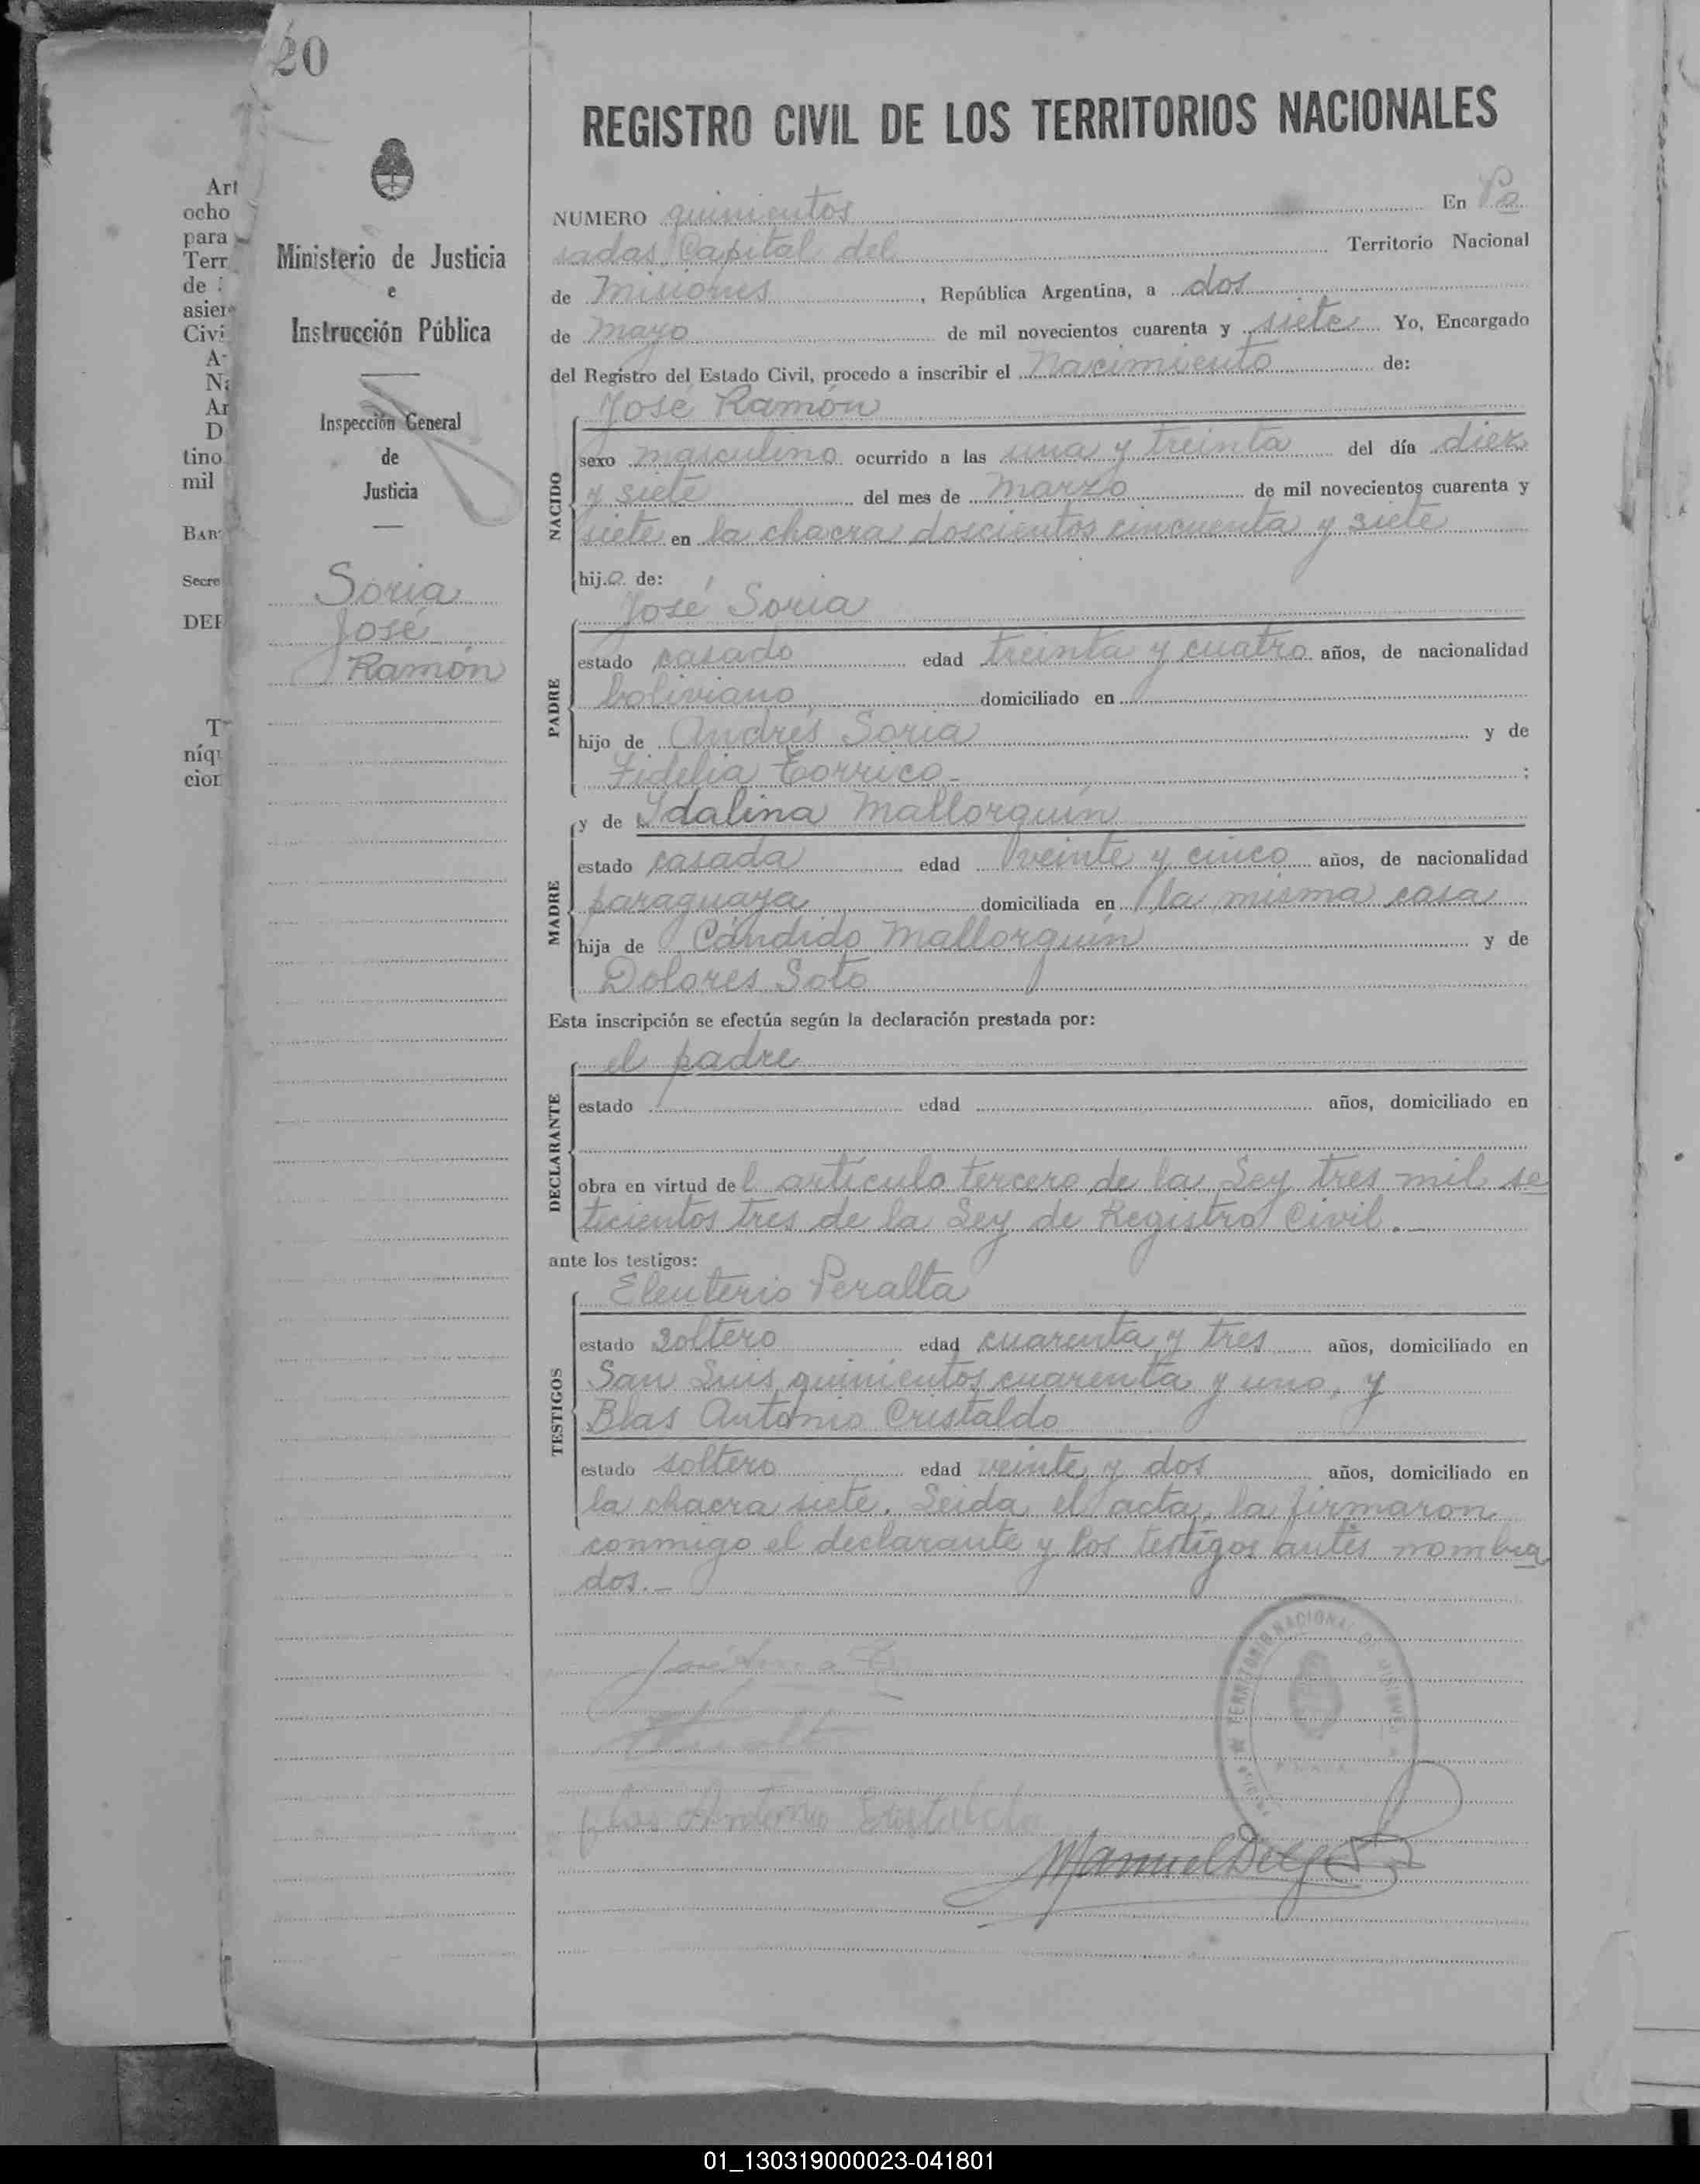 20
REGISTRO CIVIL DE LOS TERRITORIOS NACIONALES
Art
ocho
para
Terr
de
asier
Civi
A
N
Ar
D
tino
mil
BAR
Secre
DEP
T
níq
cion
Ministerio de Justicia
e
Instrucción Pública
Inspección General
de
Justicia
Soria
José
Ramón
NUMERO quinientos En Po
sadas Capital del Territorio Nacional
de Misiones, República Argentina, a dos
de Mayo de mil novecientos cuarenta y siete Yo, Encargado
del Registro del Estado Civil, procedo a inscribir el Nacimiento de:
NACIDO
José Ramón
sexo masculino ocurrido a las una y treinta del día diez
y siete del mes de Marzo de mil novecientos cuarenta y
siete en la chacra doscientos cincuenta y siete
hijo de:
PADRE
José Soria
estado casado edad treinta y cuatro años, de nacionalidad
boliviano, domiciliado en
hijo de Andrés Soria y de
Fidelia Torrico ;
MADRE
y de Idalina Mallorquín
estado casada edad veinte y cinco años, de nacionalidad
paraguaya domiciliada en la misma casa
hija de Cándido Mallorquín y de
Dolores Soto
Esta inscripción se efectúa según la declaración prestada por:
DECLARANTE
el padre
estado edad años, domiciliado en
obra en virtud del artículo tercero de la Ley tres mil se
tecientos tres de la Ley de Registro Civil.
ante los testigos:
TESTIGOS
Eleuterio Peralta
estado soltero edad cuarenta y tres años, domiciliado en
San Luis quinientos cuarenta y uno, y
Blas Antonio Cristaldo
estado soltero edad veinte y dos años, domiciliado en
la chacra siete. Leida el acta, la firmaron
conmigo el declarante y los testigos antes nombra
dos.-
TERRITORIO NACIONAL DE MISIONES
Blas Antonio Cristaldo
01_130319000023-041801